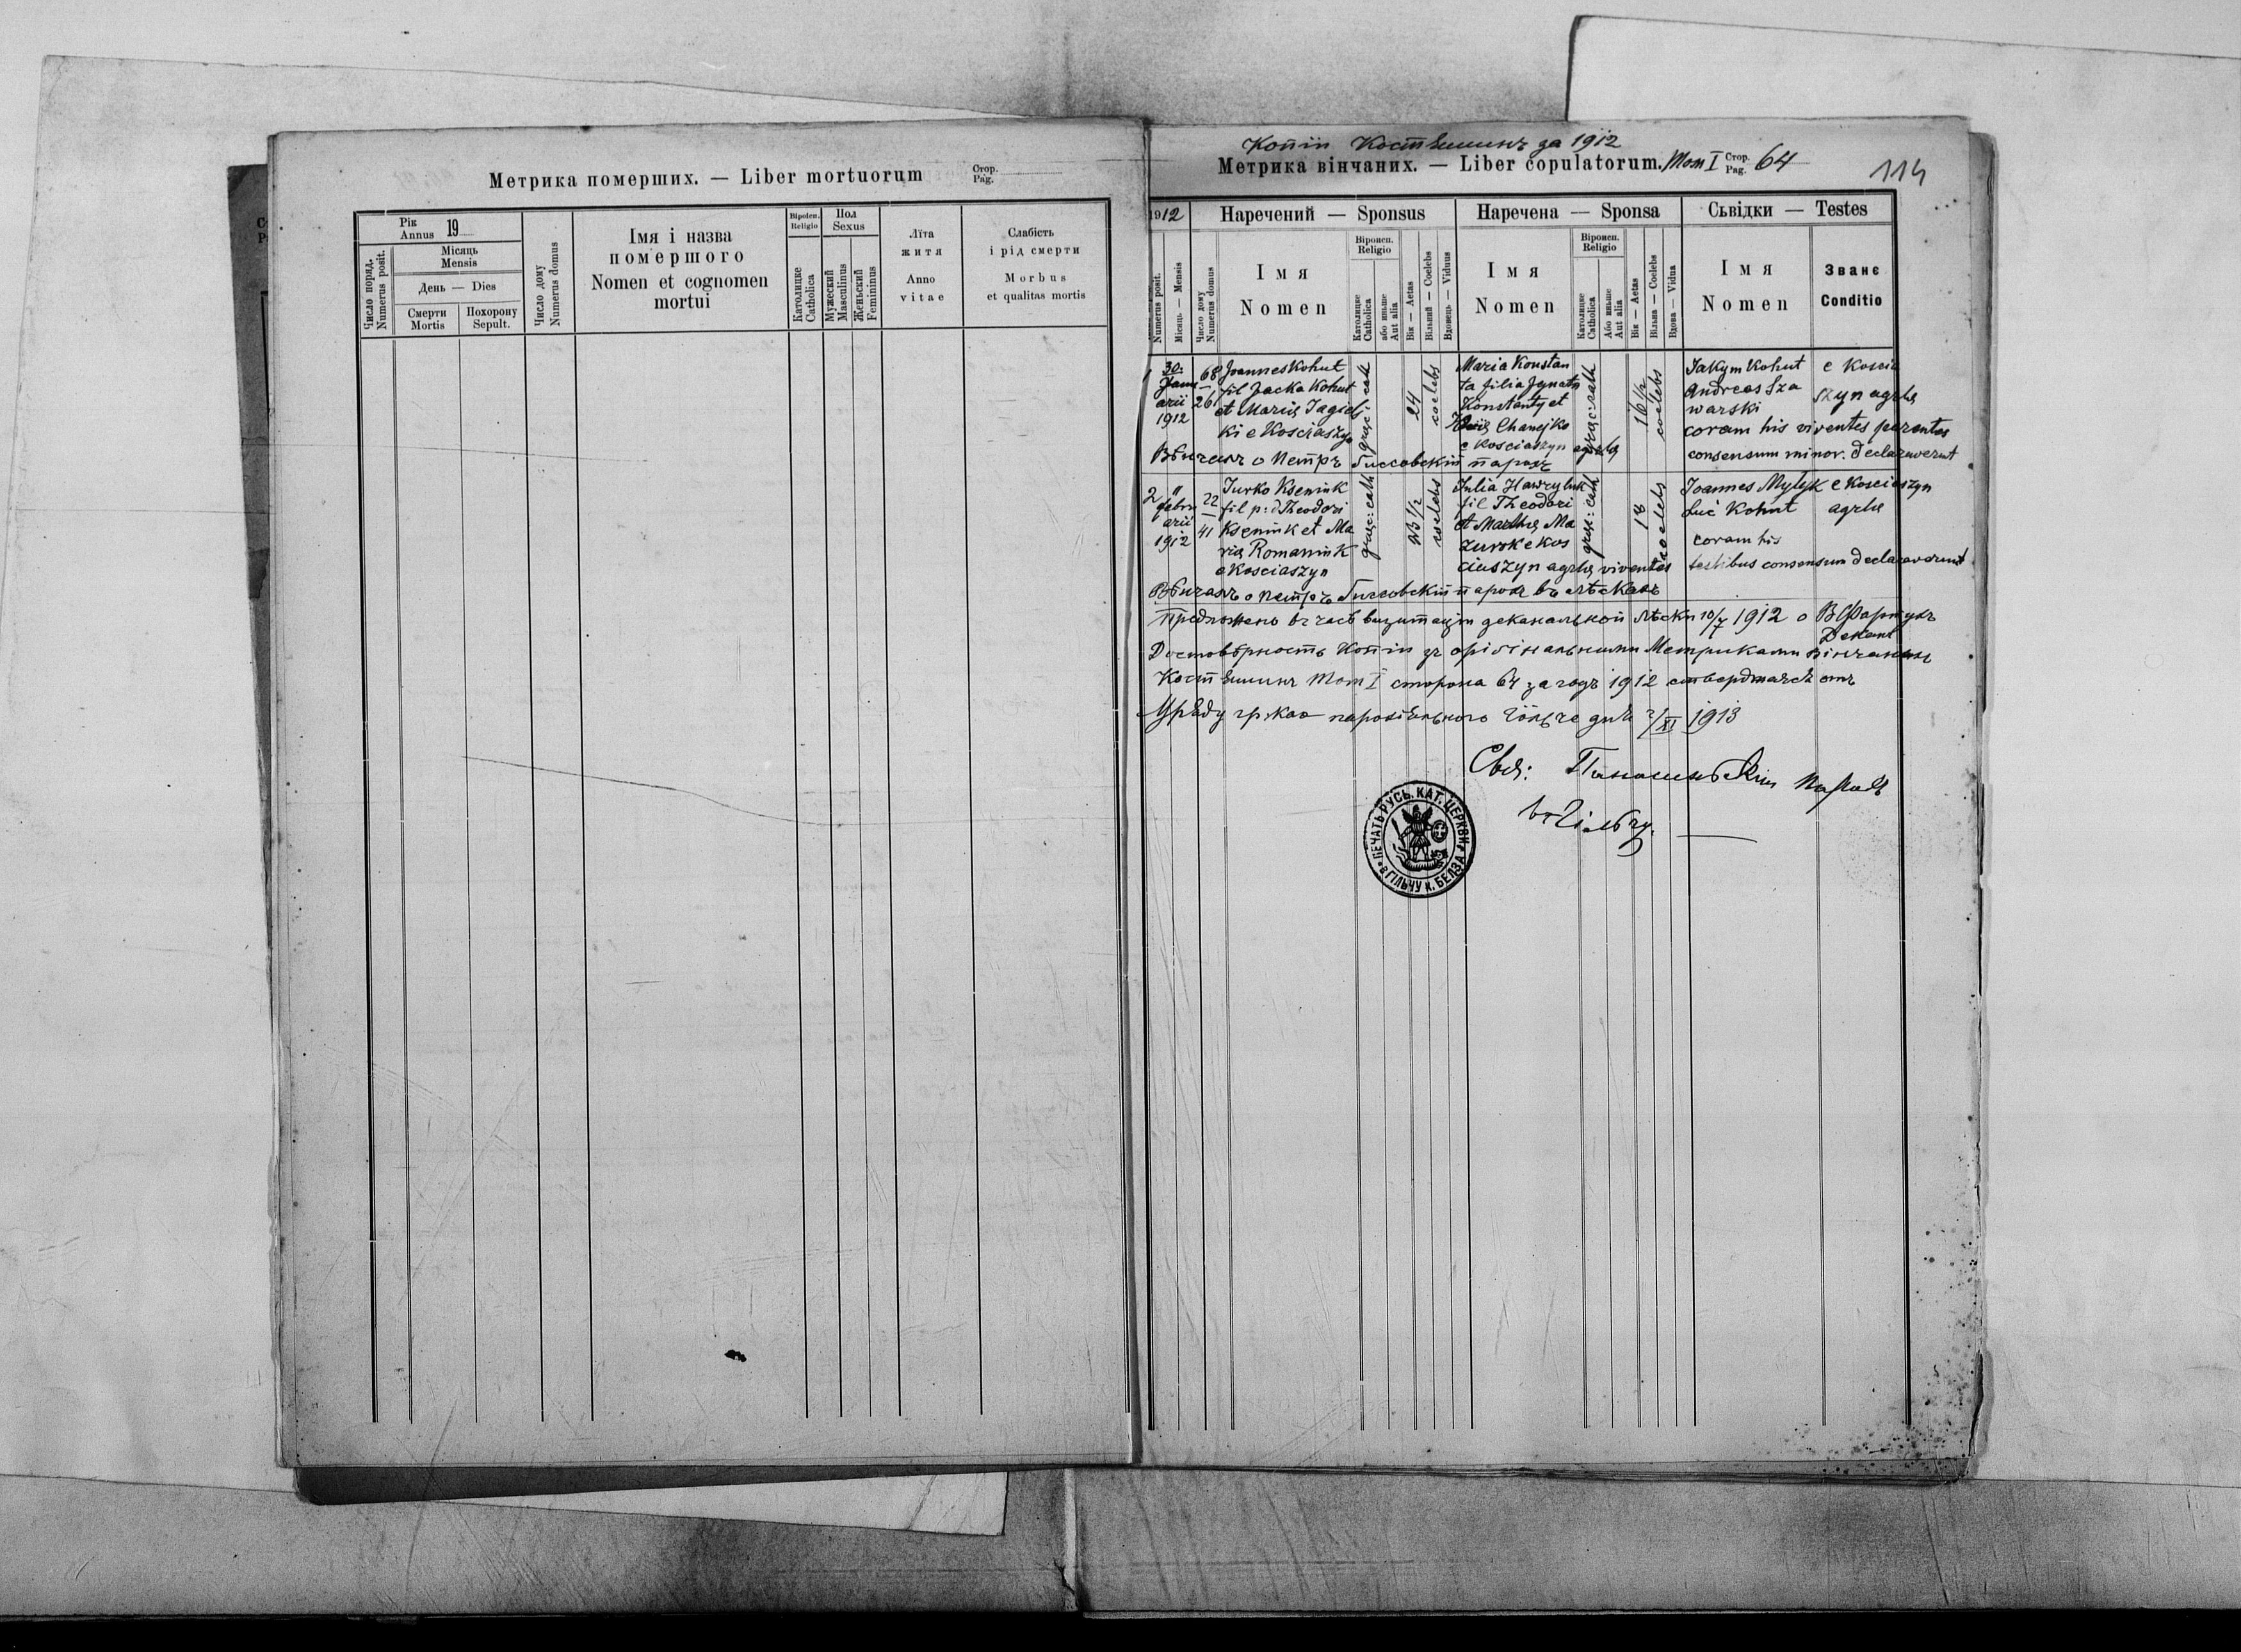 Метрика померших. — Liber mortuorum
Стор.
Pag.
Рік
Annus 19
Число поряд.
Numerus posit.
Місяць
Mensis
День — Dies
Смерти
Mortis
Похорону
Sepult.
Число дому
Numerus domus
Імя і назва
помершого
Nomen et cognomen
mortui
Віроісп.
Religio
Католицке
Catholica
Пол
Sexus
Мужеский
Masculinus
Женьский
Femininus
Лїта
житя
Anno
vitae
Слабість
і рід смерти
Morbus
et qualitas mortis
Копіи Костѣшинъ за 1912
Метрика вінчаних. — Liber copulatorum. Том I Стор. Pag. 64
114
1912
Numerus posit.
Місяць — Mensis
Число дому
Numerus domus
Наречений — Sponsus
Імя
Nomen
Віроисп.
Religio
Католицке
Catholica
або иньше
Aut alia
Вік — Aetas
Вільний — Coelebs
Вдовець — Viduus
Наречена — Sponsa
Імя
Nomen
Віроисп.
Religio
Католицке
Catholica
Або иньше
Aut alia
Вік — Aetas
Вільна — Coelebs
Вдова — Vidua
Сьвідки — Testes
Імя
Nomen
Званє
Conditio
1
30
Janu
arii
1912
68
26
Joannes Kohut
fil Jacka Kohut
et Marię Jagiel
ki e Kosciaszyn
gręc: cath
24
coelebs
Maria Konstan
ta filia Ignatii
Konstanty et
Chanejko
e Kosciaszyn agrlę
gręc: cath
16 1/2
coelebs
Jakym Kohut e Koscia
Andreas Sza szyn agrlę
warski
coram his viventes parentes
consensum minor. declaraverunt
Вѣнчалъ о Петръ Гиссовскій парохъ
2
"
febru
arii
1912
22
41
Jurko Kseniuk
fil p: d Theodori
Kseniuk et Ma
rię Romaniuk
e Kosciaszyn
gręc: cath
23 1/2
coelebs
Julia Hawryluk
fil Theodori
et Marthę Ma
zurok e Kos
ciaszyn agrlę viventes
gręc: cath
18
coelebs
Joannes Mylyk e Kosciaszyn
Luć Kohut agrlę
coram his
testibus consensum declaraverunt
Вѣнчалъ о Петръ Гиссовскій парохъ въ Лѣскахъ
Предложено въ часѣ визитаціи деканальной Лѣски 10/7 1912 о В Фартухъ
Декант
Достовѣрность копіи зъ оріґінальными Метриками вінчаныхъ
Костѣшинъ Том I сторона 64 за годъ 1912 ствердтаєсѣ отъ
Урѣду гр. кат парохіѣльного Гôльче днѣ 2/XI 1913
парохъ
въ Гільчу.
ПЕЧАТЬ РУСЬ. КАТ. ЦЕРКВИ
в ГІЛЬЧУ К. БЕЛЗА